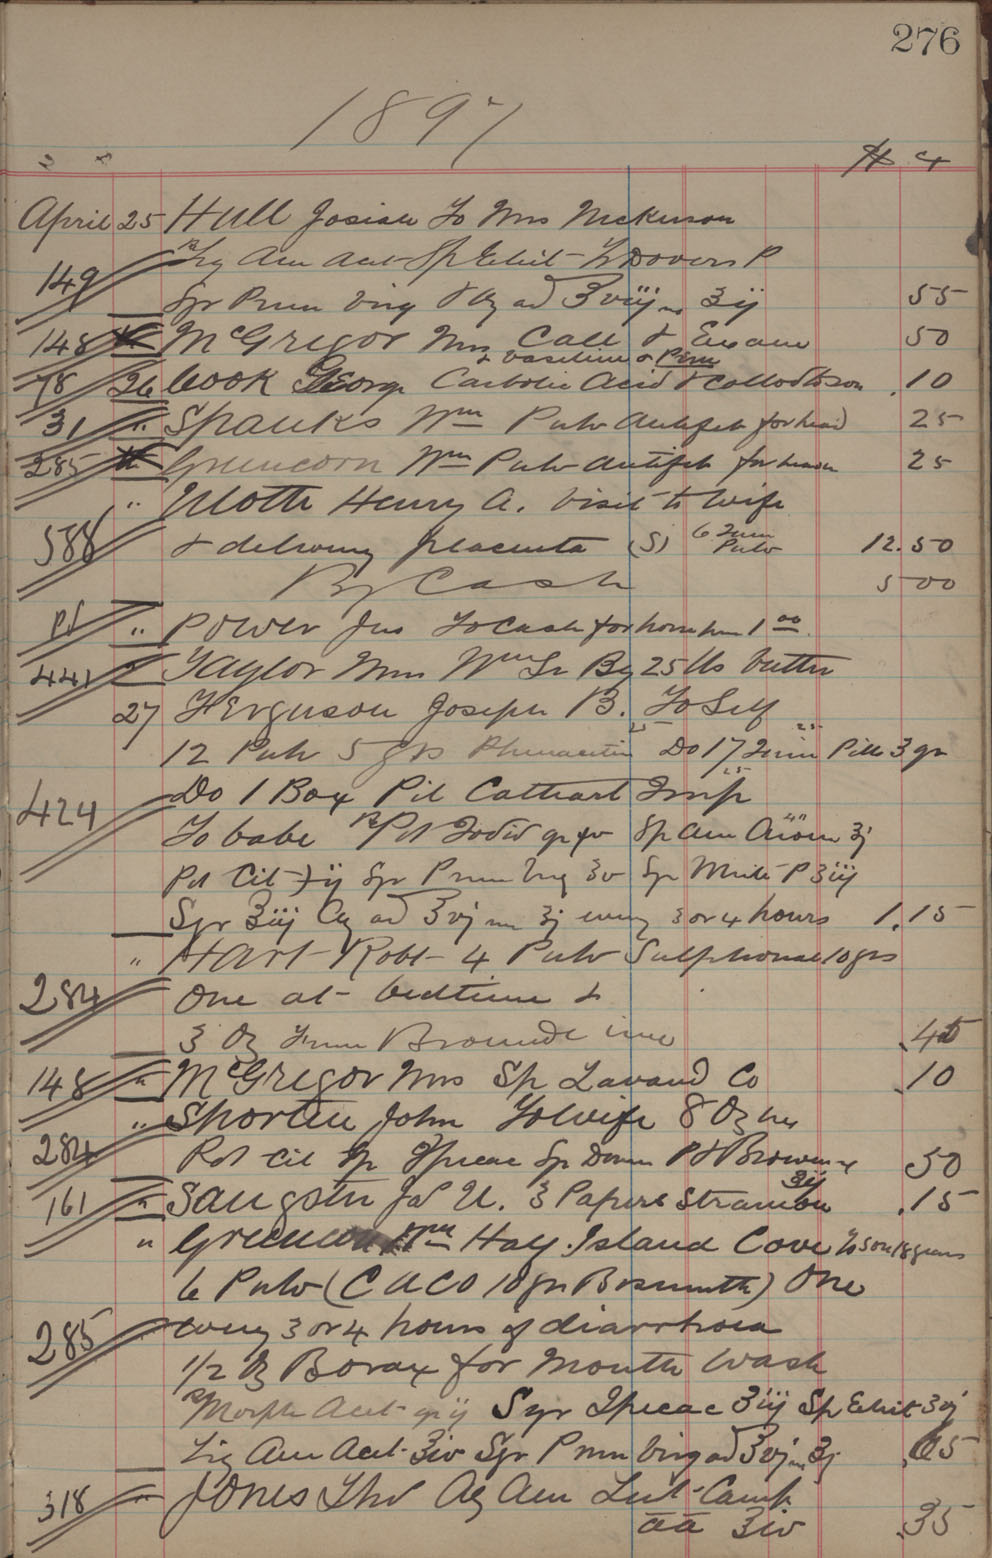 276
1897
$ c
April 25 Hull Josiah To Mrs McKinnon
149 Liq Am Acet Sp Ethit Dovers P
Syr Prun Virg Aq ad ℥viij ʒij 55
148 " McGregor Mrs Call & Exam 50
& vaseline &
78 26 Cook George Carbolic Acid & Collodion .10
31 " Shanks Wm Pulv Antifeb for head 25
285 " Greencorn Wm Pulv Antifeb for 25
588 " Motte Henry A. Visit to Wife
& delivering placenta (S) 6 Pulv 12.50
By Cash 500
Pd " Power Jas To Cash for 1 00
441 " Taylor Mrs Wm Sr By 25 lbs butter
27 Ferguson Joseph B. To Self
12 Pulv 5 grs Phenacetin Do 17 Quin Pills 3 gr
424 Do 1 Box Pil Cathart Imp
To babe Pot Iodid Sp Am Arom ʒj
Pot Cit Syr Prun Virg ʒv
Syr ʒiij Aq ad ℥vj ʒj every 3 or 4 hours 1.15
" Hart Robt 4 Pulv Sulphonal 10 grs
284 One at bedtime &
3 Oz .45
148 " McGregor Mrs Sp Lavand Co .10
284 " Shorten John To Wife 8 Oz
Pot Cit Ipecac 50
ʒij
161 " Sangster Jas U. 3 Papers Stramon .15
" Greencorn Wm Hay Island Cove To son 18 years
6 Pulv (C U C O 10 gr Bismuth) One
285 every 3 or 4 hours if diarrhoea
1/2 ℥ Borax for Mouth Wash
Morph Acet gr ij Syr Ipecac ʒiij Sp Ethit ʒvj
Liq Am Acet ʒiv Syr Prun Virg ad ℥vj ʒj .65
318 " Jones Thos Aq Am Lint Camph
aa ʒiv .35